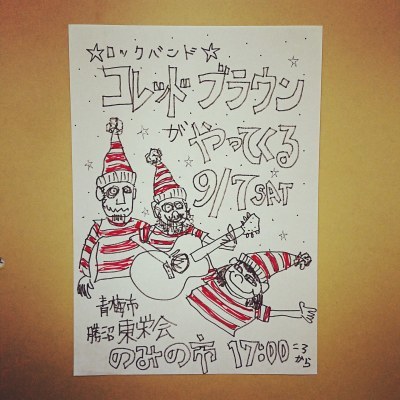 ☆ロックバンド☆
コレッド ブラウン
が やってくる
9/7 SAT
青梅市
勝沼 東栄会
のみの市 17:00 ころから